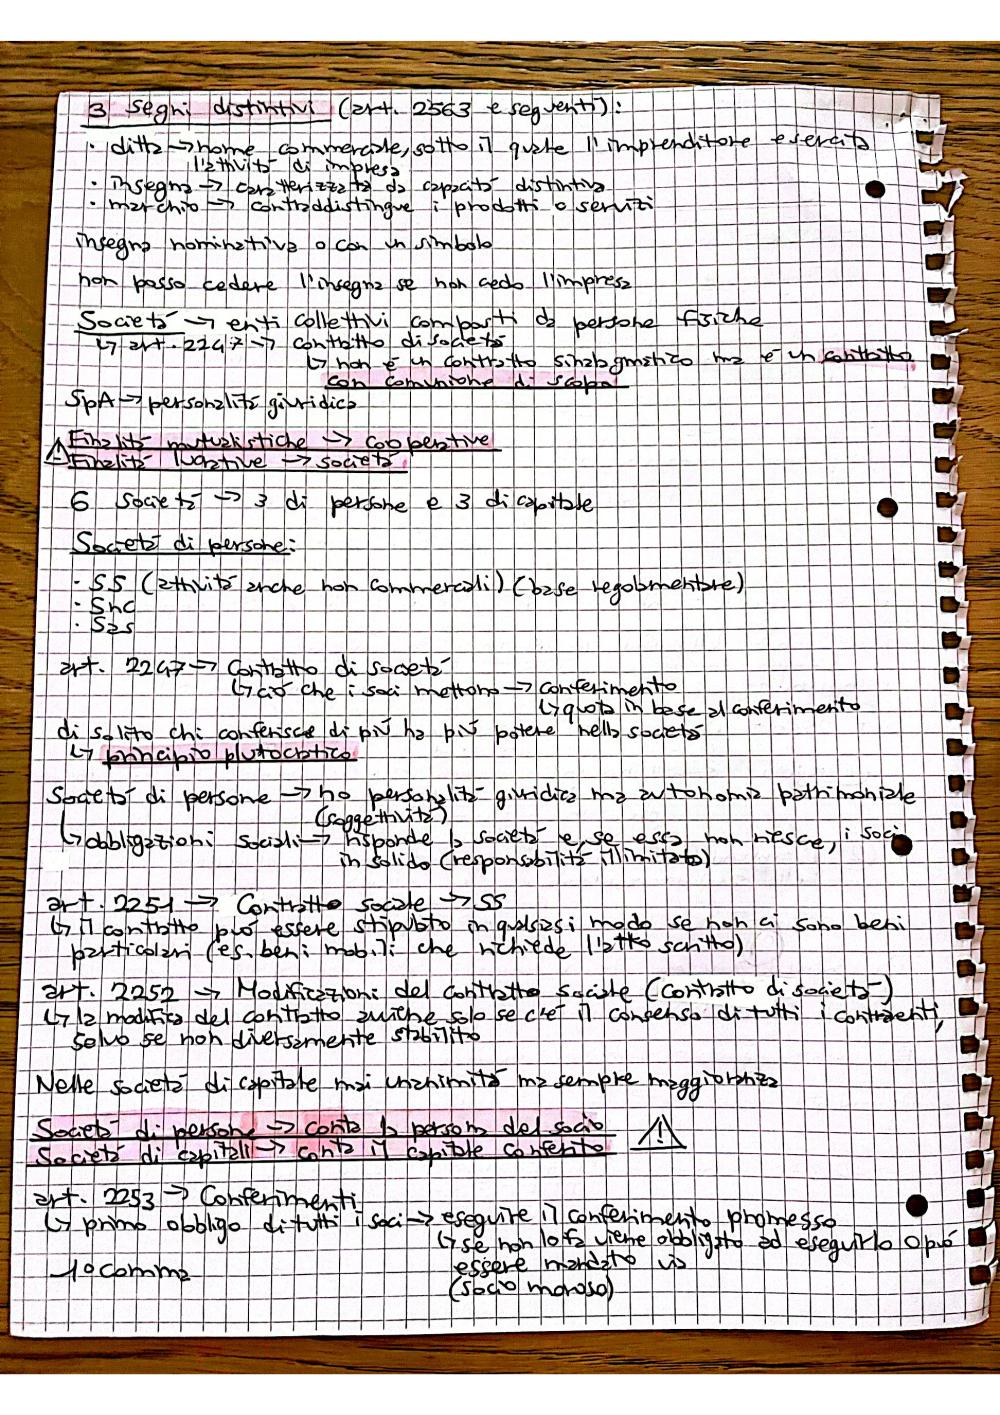 3 segni distintivi (art. 2563 e seguenti):
· ditta → nome commerciale, sotto il quale l'imprenditore esercita
l'attività di impresa
· insegna → caratterizzata da capacità distintiva
· marchio → contraddistingue i prodotti o servizi
insegna nominativa o con un simbolo
non posso cedere l'insegna se non cedo l'impresa
Società → enti collettivi composti da persone fisiche
↳ art. 2247 → contratto di società
↳ non è un contratto sinalagmatico ma è un contratto
con comunione di scopo
SpA → personalità giuridica
⚠ Finalità mutualistiche → cooperative
Finalità lucrative → società
6 società → 3 di persone e 3 di capitale
Società di persone:
· SS (attività anche non commerciali) (base regolamentare)
· Snc
· Sas
art. 2247 → Contratto di società
↳ ciò che i soci mettono → conferimento
↳ quota in base al conferimento
di solito chi conferisce di più ha più potere nella società
↳ principio plutocratico
Società di persone → no personalità giuridica ma autonomia patrimoniale
(soggettività)
↳ obbligazioni sociali → risponde la società e, se essa non riesce, i soci
in solido (responsabilità illimitata)
art. 2251 → Contratto sociale → SS
↳ il contratto può essere stipulato in qualsiasi modo se non ci sono beni
particolari (es. beni mobili che richiede l'atto scritto)
art. 2252 → Modificazioni del contratto sociale (contratto di società)
↳ la modifica del contratto avviene solo se c'è il consenso di tutti i contraenti,
salvo se non diversamente stabilito
Nelle società di capitale mai unanimità ma sempre maggioranza
Società di persone → conta la persona del socio
Società di capitali → conta il capitale conferito ⚠
art. 2253 → Conferimenti
↳ primo obbligo di tutti i soci → eseguire il conferimento promesso
↳ se non lo fa viene obbligato ad eseguirlo o può
1° comma essere mandato via
(socio moroso)